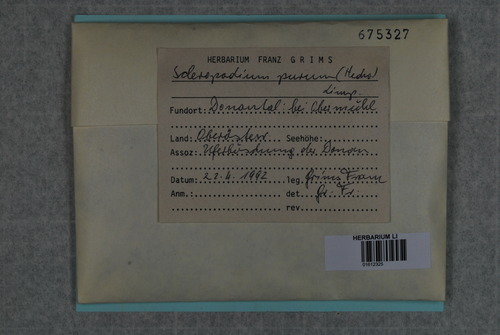 675327
HERBARIUM FRANZ GRIMS
Scleropodium purum (Hedw.)
Limpr.
Fundort: Donautal: bei Obermühl
Land: Oberösterr. Seehöhe:
Assoz: Uferböschung der Donau
Datum: 20.4.1992 leg. Grims Franz
Anm.: det. Gr. Fr.
rev.
HERBARIUM LI